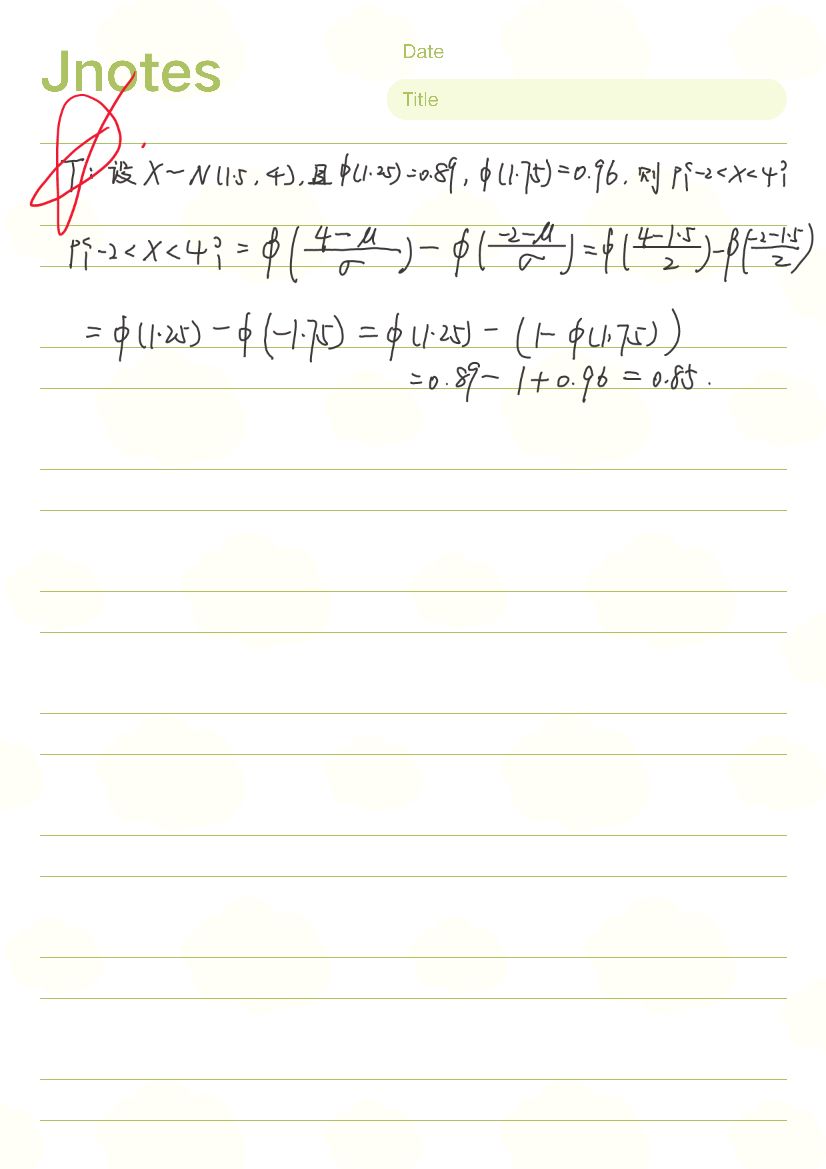 Jnotes
Date
Title
T: 设 X~N(1.5, 4), 且 φ(1.25)=0.89, φ(1.75)=0.96, 则 P{-2<X<4}
P{-2<X<4} = φ((4-μ)/σ) - φ((-2-μ)/σ) = φ((4-1.5)/2) - φ((-2-1.5)/2)
= φ(1.25) - φ(-1.75) = φ(1.25) - (1-φ(1.75))
= 0.89 - 1 + 0.96 = 0.85.